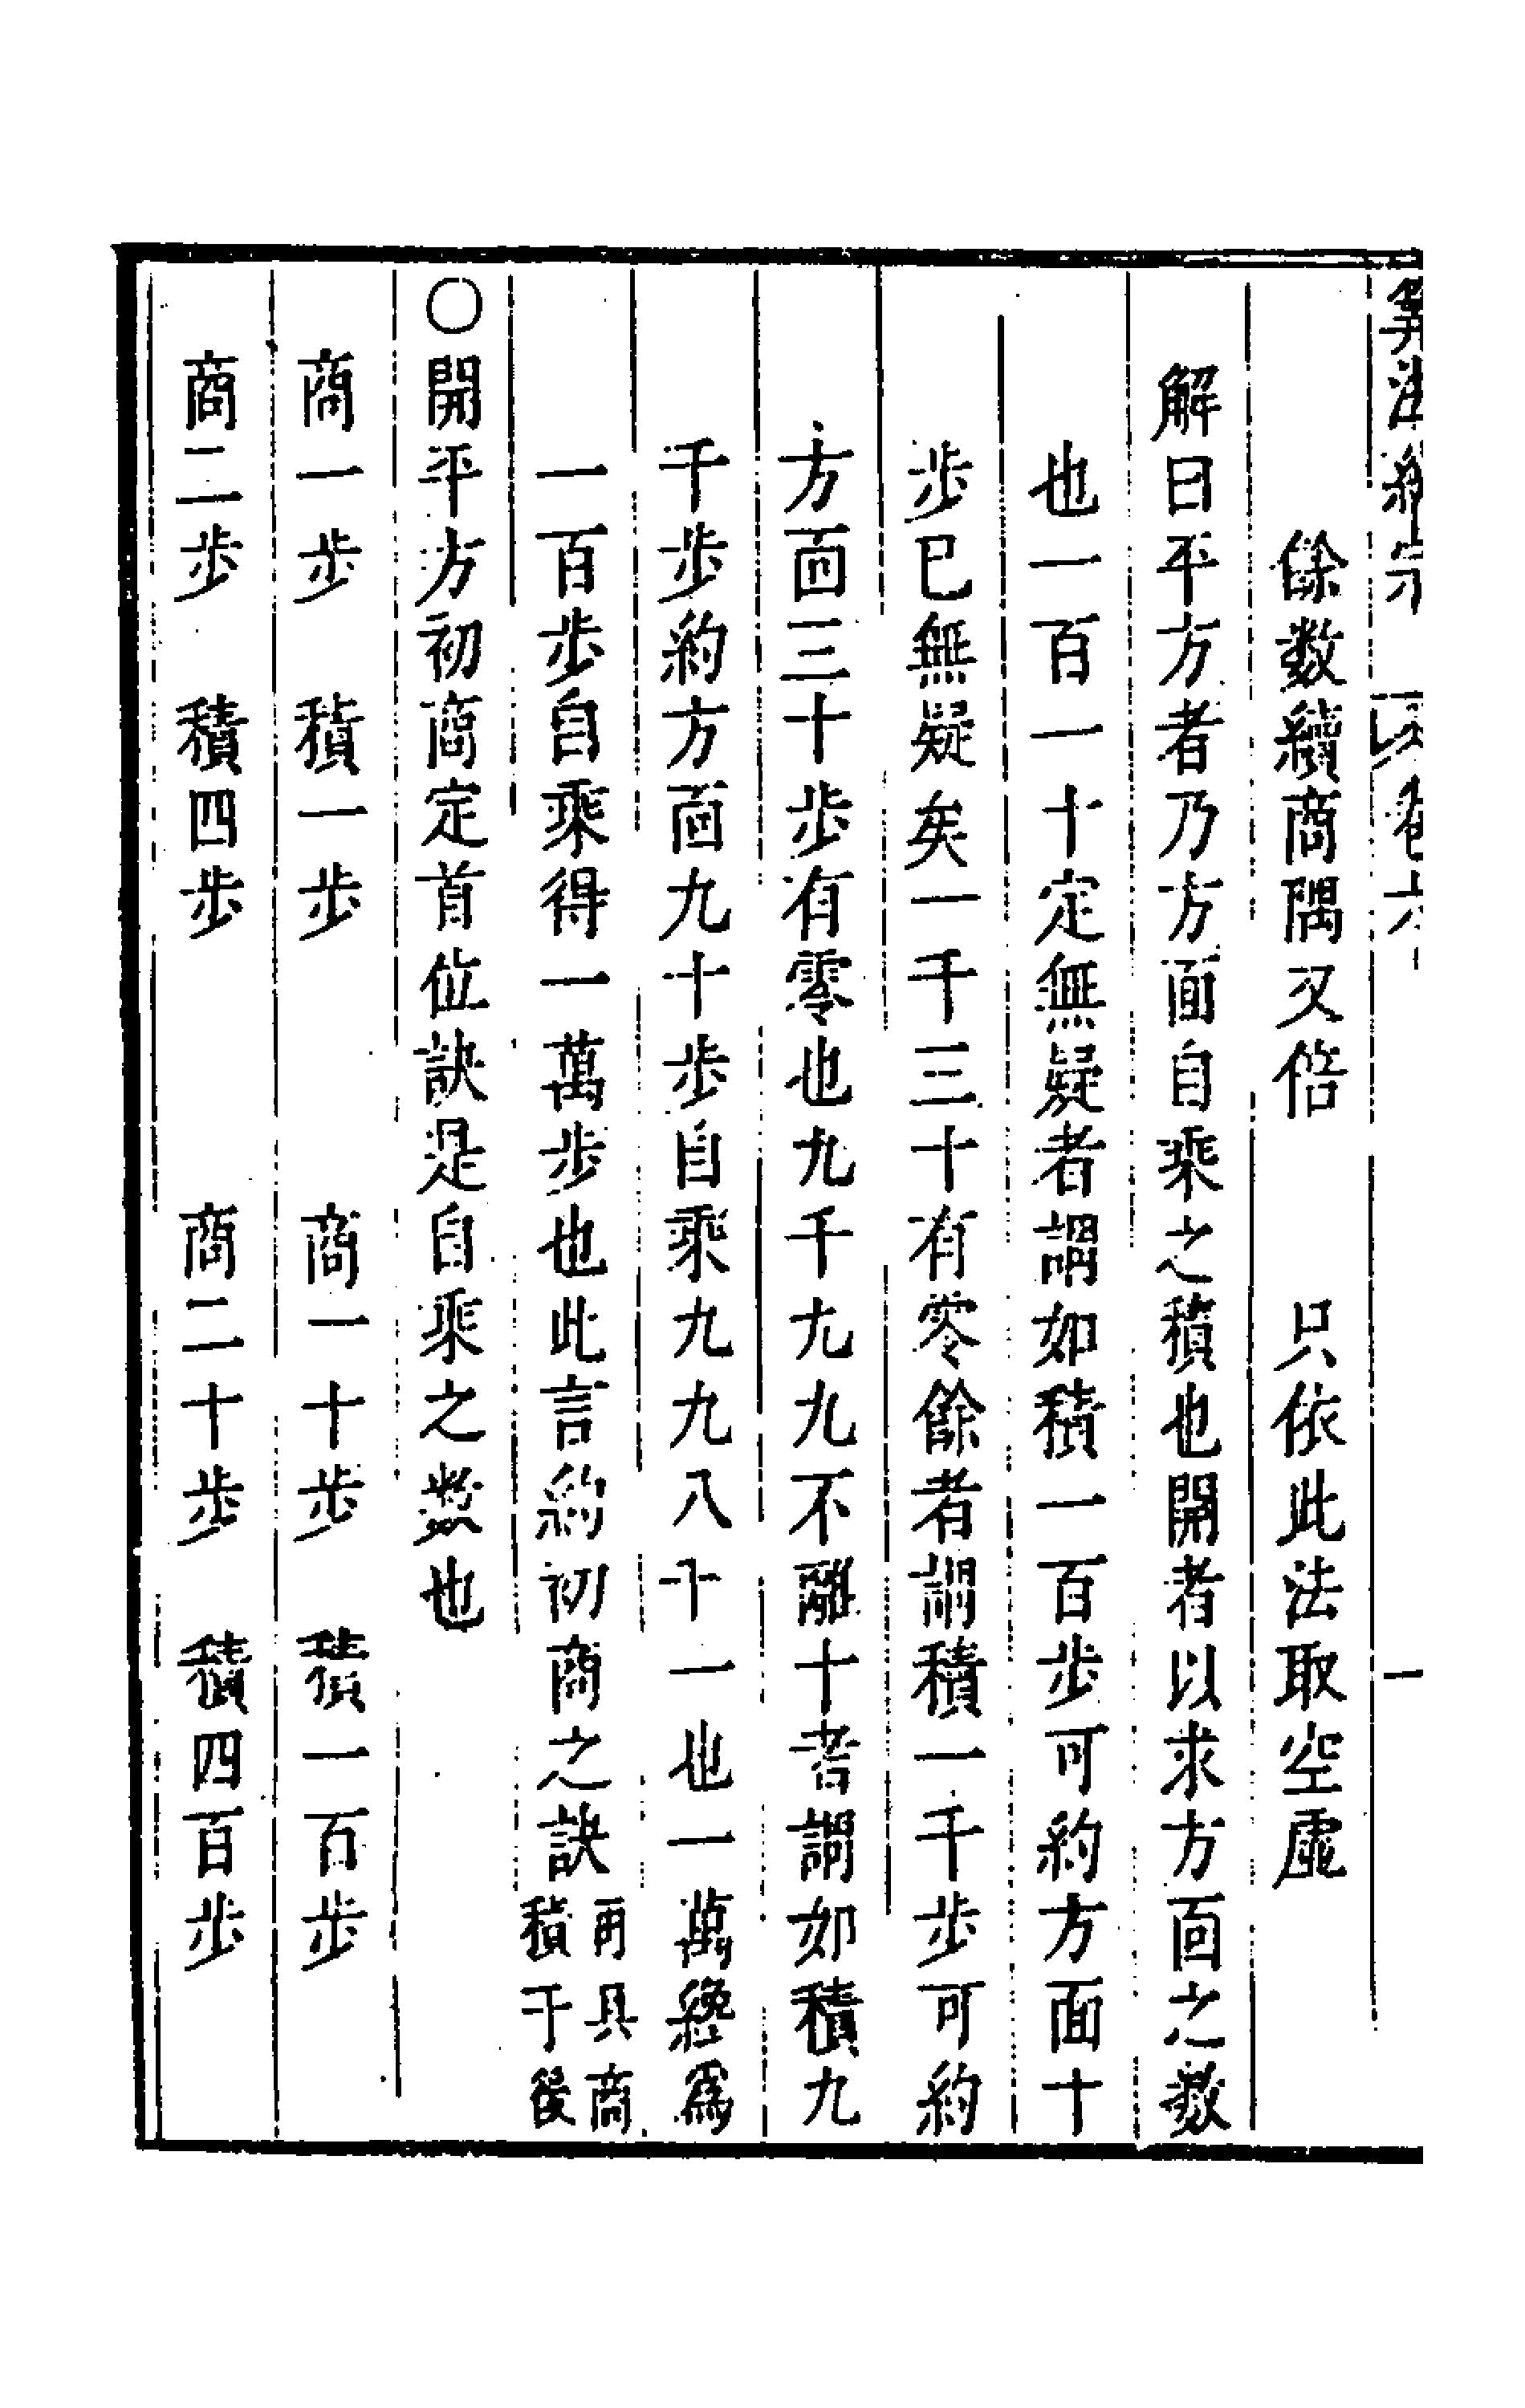 算法統宗 卷六 一
餘数續商隅又倍 只依此法取空虛
解曰平方者乃方面自乘之積也開者以求方面之数
也一百一十定無疑者謂如積一百步可約方面十
步已無疑矣一千三十有零餘者謂積一千步可約
方面三十步有零也九千九九不離十者謂如積九
千步約方面九十步自乘九九八十一也一萬纔爲
一百步自乘得一萬步也此言約初商之訣再具商積于後
〇開平方初商定首位訣是自乘之数也
商一步 積一步 商一十步 積一百步
商二步 積四步 商二十步 積四百步